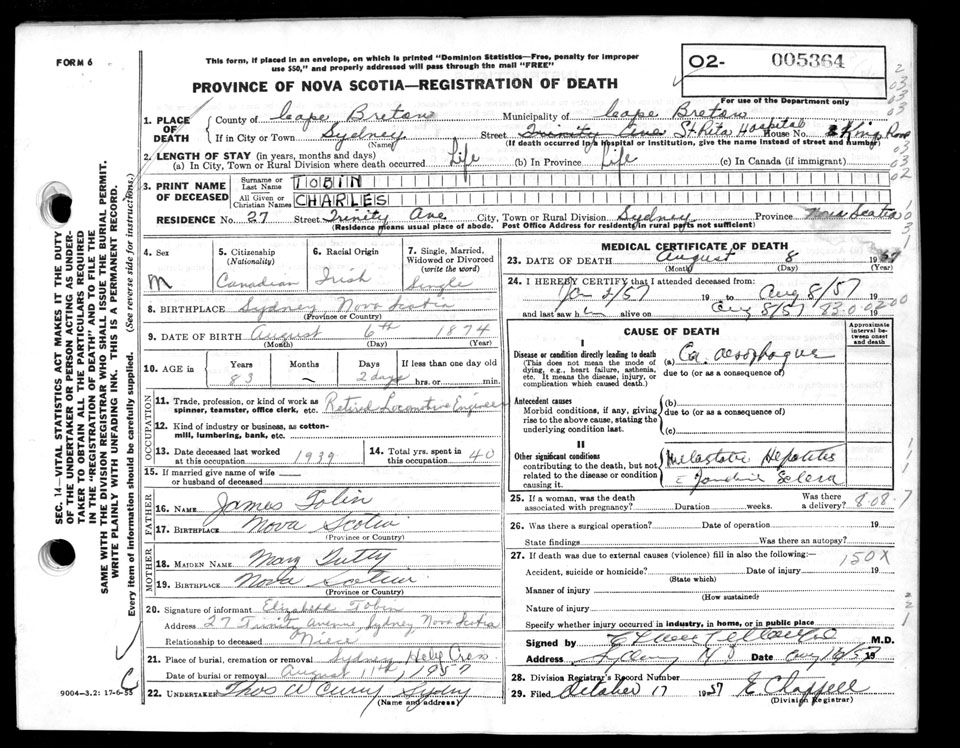 FORM 6
This form, if placed in an envelope, on which is printed "Dominion Statistics—Free, penalty for improper
use $50," and properly addressed will pass through the mail "FREE"
O2- 005364
For use of the Department only
PROVINCE OF NOVA SCOTIA—REGISTRATION OF DEATH
1. PLACE OF DEATH
County of Cape Breton Municipality of Cape Breton
If in City or Town Sydney (Name) Street Trinity Ave St Rita Hospital House No. King Road
(If death occurred in a hospital or institution, give the name instead of street and number)
2. LENGTH OF STAY (in years, months and days)
(a) In City, Town or Rural Division where death occurred Life (b) In Province Life (c) In Canada (if immigrant)
3. PRINT NAME OF DECEASED
Surname or Last Name TOBIN
All Given or Christian Names CHARLES
RESIDENCE No. 27 Street Trinity Ave City, Town or Rural Division Sydney Province Nova Scotia
(Residence means usual place of abode. Post Office Address for residents in rural parts not sufficient)
4. Sex M
5. Citizenship (Nationality) Canadian
6. Racial Origin Irish
7. Single, Married, Widowed or Divorced (write the word) Single
8. BIRTHPLACE Sydney Nova Scotia
(Province or Country)
9. DATE OF BIRTH August 6th 1874
(Month) (Day) (Year)
10. AGE in Years 83 Months – Days 2 days If less than one day old hrs. or min.
OCCUPATION
11. Trade, profession, or kind of work as spinner, teamster, office clerk, etc. Retired Locomotive Engineer
12. Kind of industry or business, as cotton-mill, lumbering, bank, etc.
13. Date deceased last worked at this occupation 1939
14. Total yrs. spent in this occupation 40
15. If married give name of wife or husband of deceased
FATHER
16. NAME James Tobin
17. BIRTHPLACE Nova Scotia
(Province or Country)
MOTHER
18. MAIDEN NAME Mary
19. BIRTHPLACE Nova Scotia
(Province or Country)
20. Signature of informant Elizabeth Tobin
Address 27 Trinity Avenue, Sydney, Nova Scotia
Relationship to deceased Niece
21. Place of burial, cremation or removal Sydney Holy Cross
Date of burial or removal August 11th, 1957
22. UNDERTAKER Thos W Curry Sydney
(Name and address)
9004-3.2: 17-6-55
MEDICAL CERTIFICATE OF DEATH
23. DATE OF DEATH August 8 1957
(Month) (Day) (Year)
24. I HEREBY CERTIFY that I attended deceased from:
Jan 2/57 19 to Aug 8/57
and last saw him alive on Aug 8/57 19
83.0 02 00
CAUSE OF DEATH
Approximate interval between onset and death
I
Disease or condition directly leading to death
(This does not mean the mode of dying, e.g., heart failure, asthenia, etc. It means the disease, injury, or complication which caused death.)
(a) Ca. aesophague
due to (or as a consequence of)
Antecedent causes
Morbid conditions, if any, giving rise to the above cause, stating the underlying condition last.
(b)
due to (or as a consequence of)
(c)
II
Other significant conditions
contributing to the death, but not related to the disease or condition causing it.
Metastatic Hepatitis
Sclera
25. If a woman, was the death associated with pregnancy? Duration weeks. Was there a delivery?
8·08·7
26. Was there a surgical operation? Date of operation 19
State findings Was there an autopsy?
27. If death was due to external causes (violence) fill in also the following:—
150X
Accident, suicide or homicide? Date of injury 19
(State which)
Manner of injury
(How sustained)
Nature of injury
Specify whether injury occurred in industry, in home, or in public place
Signed by M.D.
Address Date Aug 10/57 19
28. Division Registrar's Record Number
29. Filed October 17 1957 E Chappell
(Division Registrar)
SEC. 14—VITAL STATISTICS MAKES IT THE DUTY
OF THE UNDERTAKER OR PERSON ACTING AS UNDER-
TAKER TO OBTAIN ALL THE PARTICULARS REQUIRED
IN THE "REGISTRATION OF DEATH" AND TO FILE THE
SAME WITH THE DIVISION REGISTRAR WHO SHALL ISSUE THE BURIAL PERMIT.
WRITE PLAINLY WITH UNFADING INK. THIS IS A PERMANENT RECORD.
Every item of information should be carefully supplied. (See reverse side for instructions.)